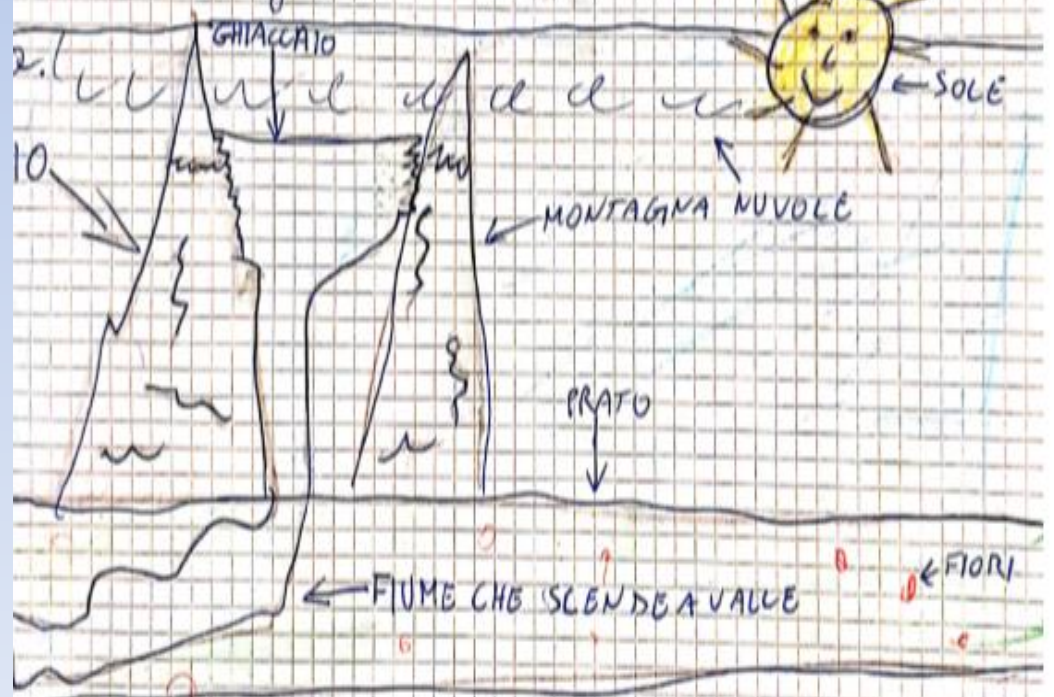 GHIACCAIO
SOLE
MONTAGNA NUVOLE
PRATO
FIORI
FIUME CHE SCENDE A VALLE